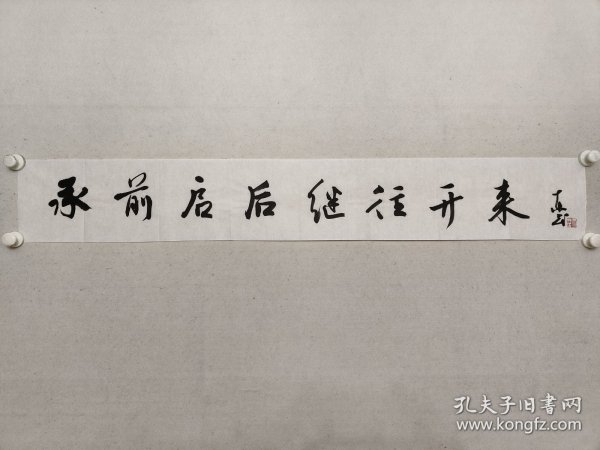 承前启后继往开来
孔夫子旧书网
www.kongfz.com